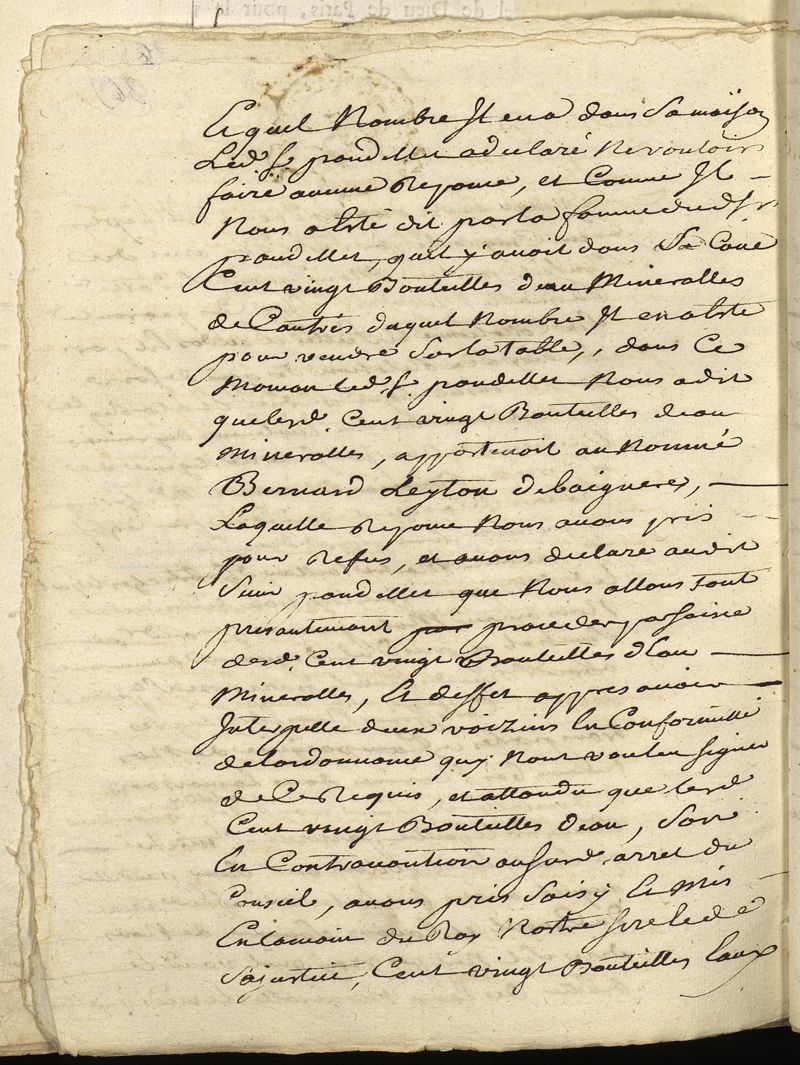 Et quel Nombre Il en a dans Sa maison
Led. Sr. pandelles a declaré Ne vouloir
faire aucune Reponce, et Comme Il
Nous a Esté dit par la famme dud. Sr.
pandelles, quil y avoit dans Sa Cave
Cent vingt Bouteilles deau Mineralles
de Cautrés duquel Nombre Il en a Esté
pour vendre Sur la table,, dans Ce
Moman led. Sr. pandelles Nous a dit
que lesd. Cent vingt Bouteilles deau
mineralles, appartenoit au Nommé
Bernard Leyton de baigneres,
Laquelle Reponce Nous avons pris
pour Refus, et avons declaré audit
Sieur pandelles que Nous allons tout
presantement proceder par Saisie
desd. Cent vingt Bouteilles d'Eau
Mineralles, Et deffet appres avoir
Interpelle deux voizins En Conformitté
de lordonnance quy Nont vouleu Signer
de Ce Requis, et attandu que lesd.
Cent vingt Bouteilles deau, Sont
En Contravantion aususd. arret du
Conseil, avons pris Saisy Et Mis
En la main du Roy Nostre Sire Et de
Sa justice, Cent vingt Bouteilles Eaux